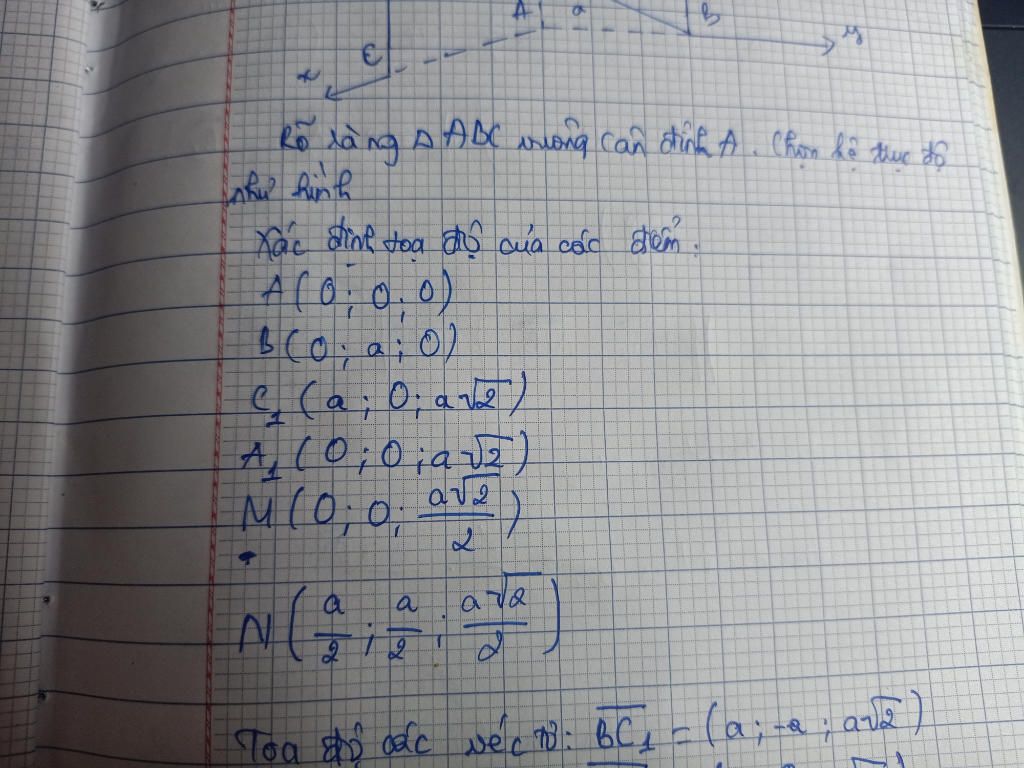 A a B y
C
x
Rõ ràng Δ ABC vuông cân đỉnh A. Chọn hệ trục độ
như hình
Xác định tọa độ của các điểm:
A(0; 0; 0)
B(0; a; 0)
C₁(a; 0; a√2)
A₁(0; 0; a√2)
M(0; 0; a√2/2)
N(a/2; a/2; a√2/2)
Tọa độ các véc tơ: BC₁ = (a; -a; a√2)